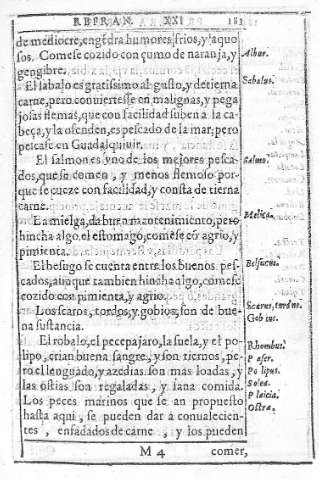 REFRAN. XXI
de mediocre, engẽdra humores frios, y aquo
sos. Comese cozido con çumo de naranja, y
gengibre.
El sabalo es gratissimo al gusto, y de tierna
carne, pero conviertesse en malignas, y pega
josas flemas, que con facilidad suben a la ca-
beça, y la ofenden, es pescado de la mar, pero
pescase en Guadalquiuir.
El salmon es vno de los mejores pesca-
dos, que se comen, y menos flemoso por-
que se cueze con facilidad, y consta de tierna
carne.
La mielga, da buẽ mantenimiento, pero
hincha algo el estomago, comese cõ agrio, y
pimienta.
El besugo se cuenta entre los buenos pes-
cados, aunque tambien hincha algo, comese
cozido con pimienta, y agrio.
Los scaros, tordos, y gobios, son de bue-
na sustancia.
El robalo, el pecepajaro, la suela, y el po-
lipo, crian buena sangre, y son tiernos, pe-
ro el lenguado, y azedias son mas loadas, y
las ostias son regaladas, y sana comida.
Los peces marinos que se an propuesto
hasta aqui, se pueden dar a conualecien-
tes, enfadados de carne, y los pueden
M 4 comer,
Albur.
Sabalus.
Salmo.
Belsucus.
Scarus, tordus.
Gobius.
Rhombus.
Passer.
Polipus.
Solea.
Plaicia.
Ostra.